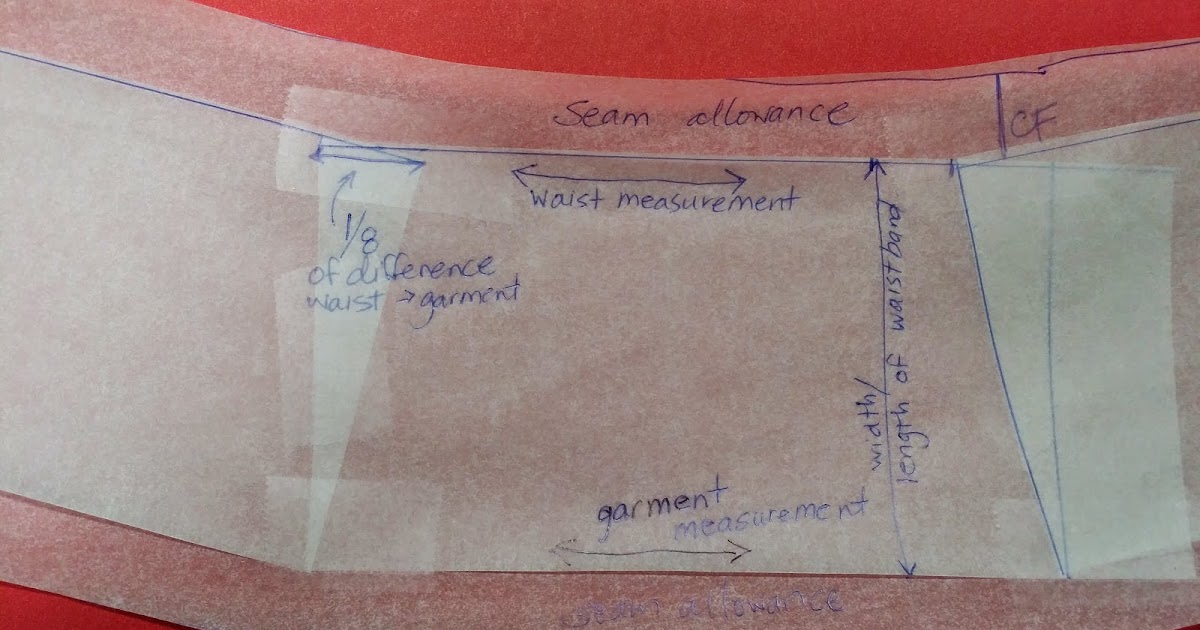 Seam allowance
CF
waist measurement
1/8
of difference
waist → garment
width/
length of waistband
garment
measurement
seam allowance